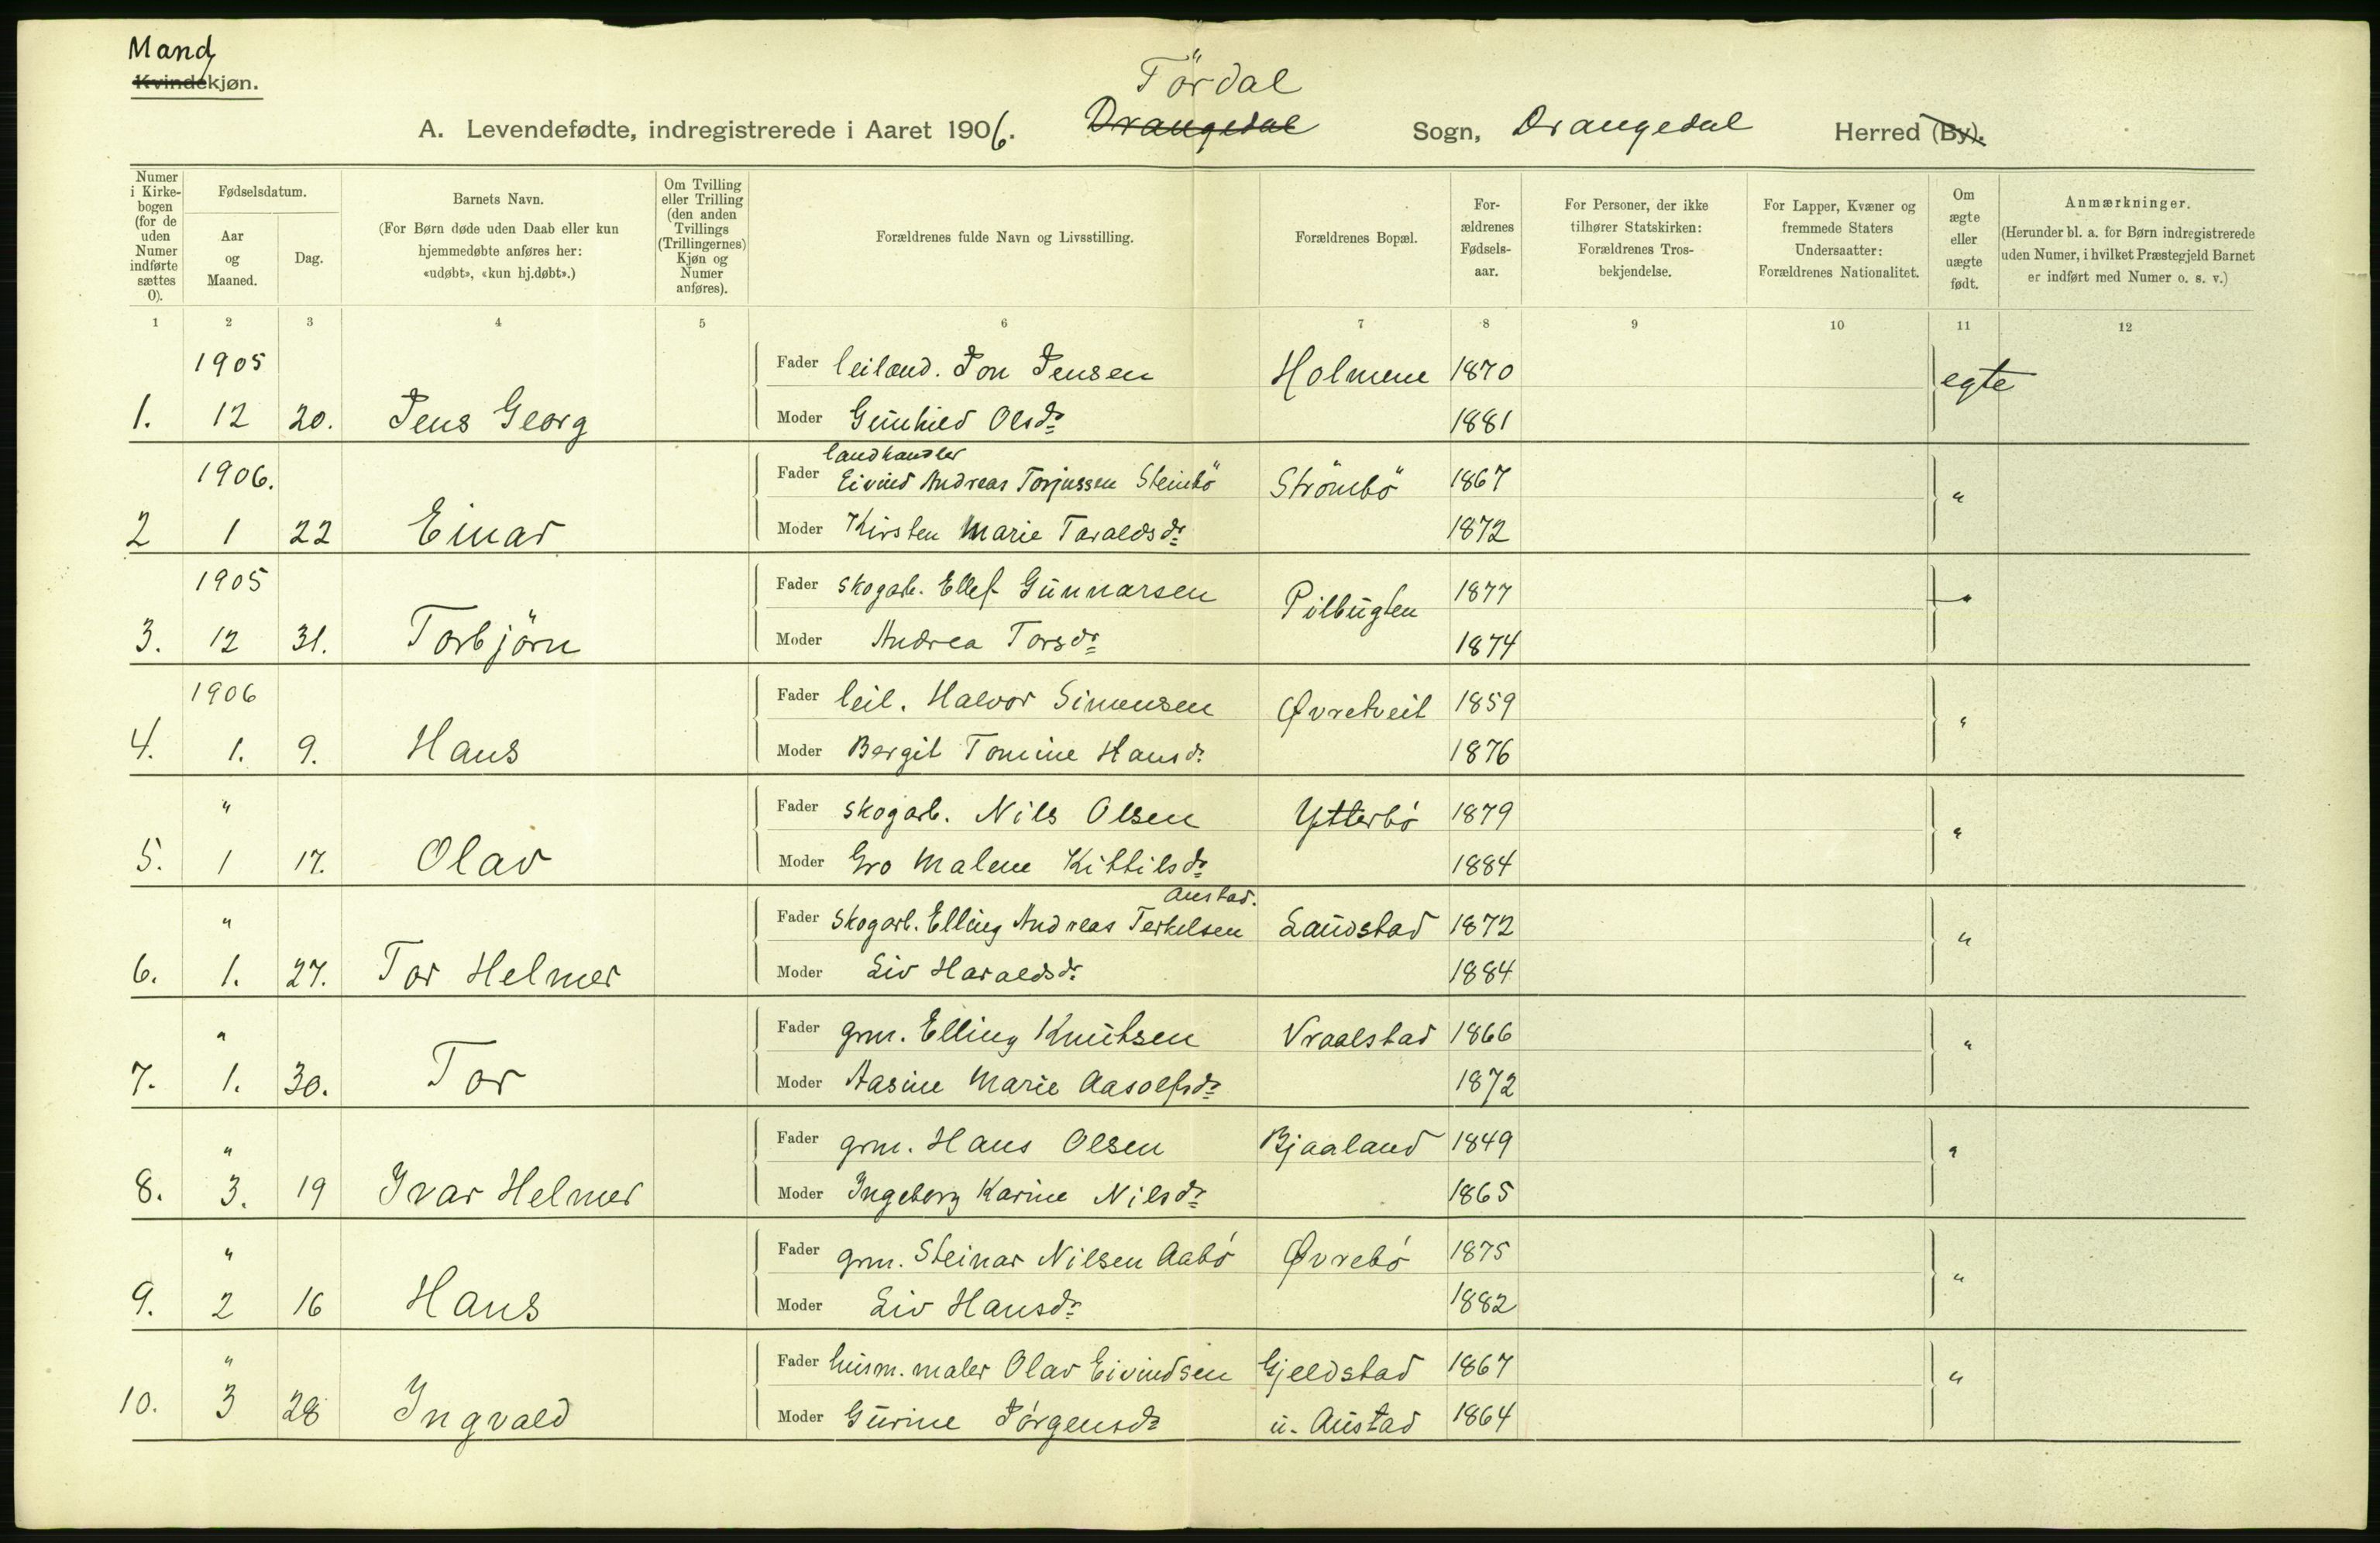 Mand
Kvindekjøn.
Tördal
A. Levendefødte, indregistrerede i Aaret 1906. Drangedal Sogn, Drangedal Herred (By).
Numer i Kirkebogen (for de uden Numer indførte sættes 0).
Fødselsdatum.
Aar og Maaned.
Dag.
Barnets Navn.
(For Børn døde uden Daab eller kun hjemmedøbte anføres her: «udøbt», «kun hj.døbt».)
Om Tvilling eller Trilling (den anden Tvillings (Trillingernes) Kjøn og Numer anføres).
Forældrenes fulde Navn og Livsstilling.
Forældrenes Bopæl.
Forældrenes Fødselsaar.
For Personer, der ikke tilhører Statskirken: Forældrenes Trosbekjendelse.
For Lapper, Kvæner og fremmede Staters Undersaatter: Forældrenes Nationalitet.
Om ægte eller uægte født.
Anmærkninger.
(Herunder bl. a. for Børn indregistrerede uden Numer, i hvilket Præstegjeld Barnet er indført med Numer o. s. v.)
1 2 3 4 5 6 7 8 9 10 11 12
1905 Fader leilænd. Jon Jensen Holmene 1870 egte
1. 12 20. Jens Georg Moder Gunhild Olsdr 1881
landhandler
1906. Fader Eivind Andreas Torjussen Steinbö Strömbö 1867 "
2 1 22 Einar Moder Kirsten Marie Taraldsdr 1872
1905 Fader skogarb. Ellef Gunnarsen Pilbugten 1877 "
3. 12 31. Torbjörn Moder Andrea Torsdr 1874
1906 Fader leil. Halvor Simonsen Øvretveit 1859 "
4. 1. 9. Hans Moder Bergit Tomine Hansdr 1876
" Fader skogarb. Nils Olsen Ytterbó 1879 "
5. 1 17. Olav Moder Gro Malene Kittilsdr 1884
Austad.
" Fader Skogarb. Elling Andreas Terkelsen Laudstad 1872 "
6. 1. 27. Tor Helmer Moder Liv Haraldsdr 1884
" Fader grm. Elling Knutsen Vraalstad 1866 "
7. 1. 30. Tor Moder Aasine Marie Aasolfsdr 1872
" Fader grm. Hans Olsen Bjaaland 1849 "
8. 3. 19 Ivar Helmer Moder Ingeborg Karine Nilsdr 1865
" Fader grm. Steinar Nilsen Aabó Øvrebó 1875 "
9. 2 16 Hans Moder Liv Hansdr 1882
" Fader husm. maler Olav Eivindsen Gjeldstad 1867 "
10. 3 28 Ingvald Moder Gurine Jórgensdr u. Austad 1864